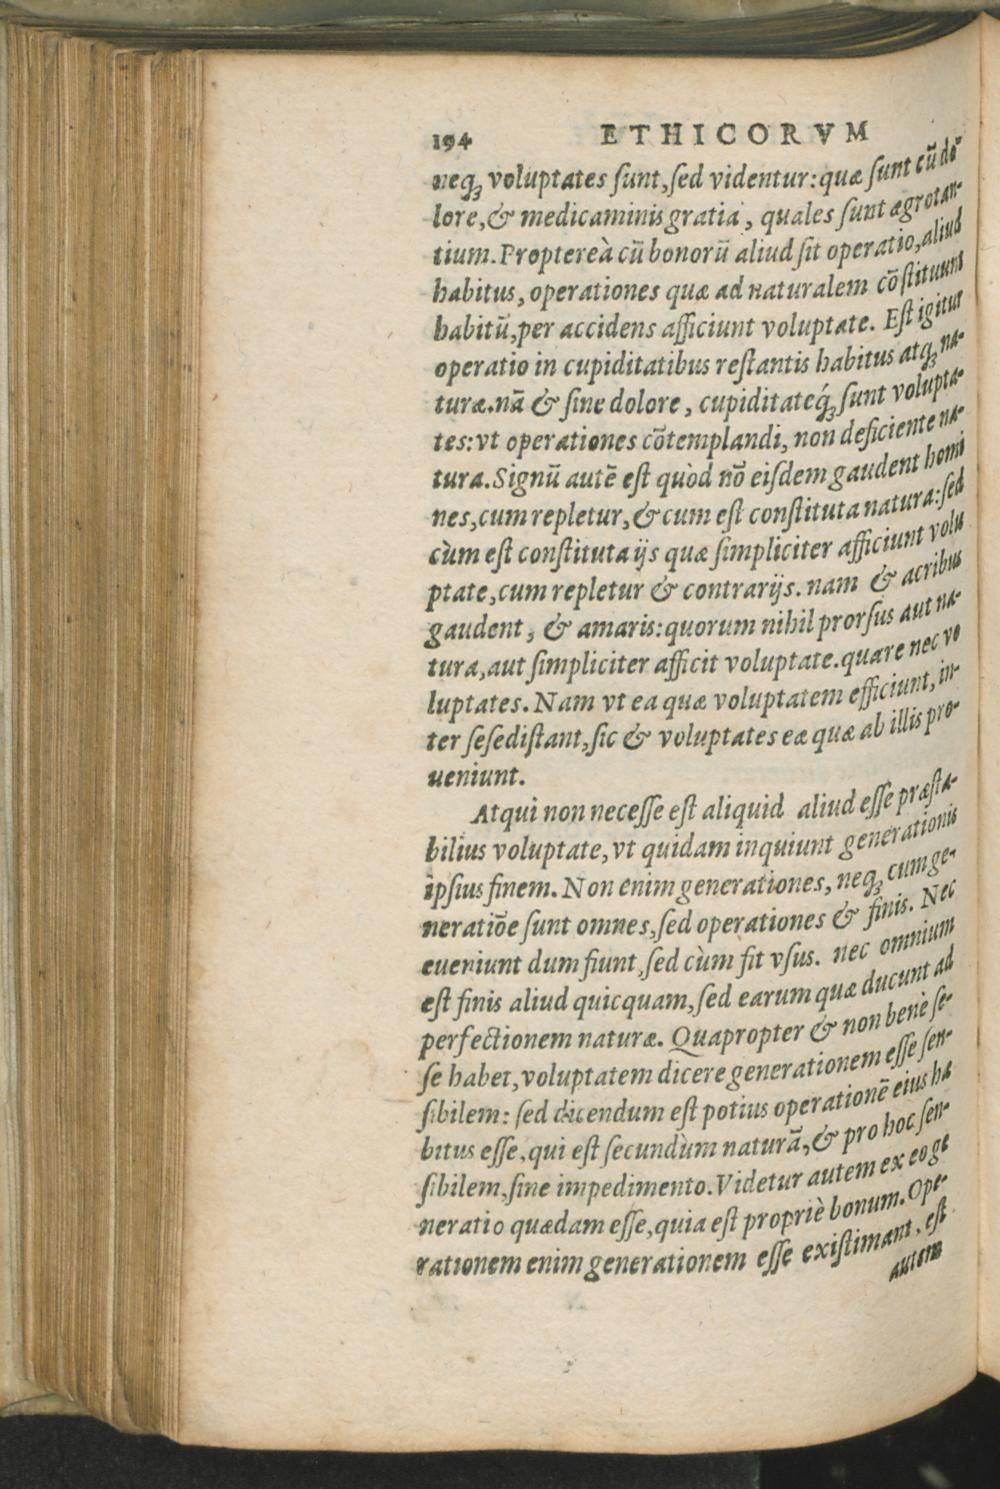 194 ETHICORVM
neq; voluptates ſunt,ſed videntur:quæ ſunt cū do-
lore,& medicaminis gratia, quales ſunt ægrotan-
tium.Proptereà cū bonorū aliud ſit operatio,aliud
habitus, operationes quæ ad naturalem cōſtituunt
habitū,per accidens afficiunt voluptate. Eſt igitur
operatio in cupiditatibus reſtantis habitus atq; na-
turæ.nā & ſine dolore, cupiditateq́; ſunt volupta-
tes:vt operationes cōtemplandi, non deficiente na-
tura.Signū autē eſt quòd nō eiſdem gaudent homi
nes,cum repletur,& cum eſt conſtituta natura:ſed
cùm eſt conſtituta ijs quæ ſimpliciter afficiunt volu
ptate,cum repletur & contrarijs. nam & acribus
gaudent, & amaris:quorum nihil prorſus aut na-
tura,aut ſimpliciter afficit voluptate.quare nec vo
luptates. Nam vt ea quæ voluptatem efficiunt, in-
ter ſeſe diſtant,ſic & voluptates eæ quæ ab illis pro-
ueniunt.
Atqui non neceſſe eſt aliquid aliud eſſe præſta-
bilius voluptate,vt quidam inquiunt generationis
ipſius finem. Non enim generationes, neq; cum ge-
neratiōe ſunt omnes,ſed operationes & finis. Nec
eueniunt dum fiunt,ſed cùm fit vſus. nec omnium
eſt finis aliud quicquam,ſed earum quæ ducunt ad
perfectionem naturæ. Quapropter & non benè ſe-
ſe habet,voluptatem dicere generationem eſſe ſen-
ſibilem: ſed dicendum eſt potius operationē eius ha
bitus eſſe,qui eſt ſecundùm naturā,& pro hoc ſen-
ſibilem,ſine impedimento.Videtur autem ex eo ge
neratio quædam eſſe,quia eſt propriè bonum.Ope-
rationem enim generationem eſſe exiſtimant, eſt
autem